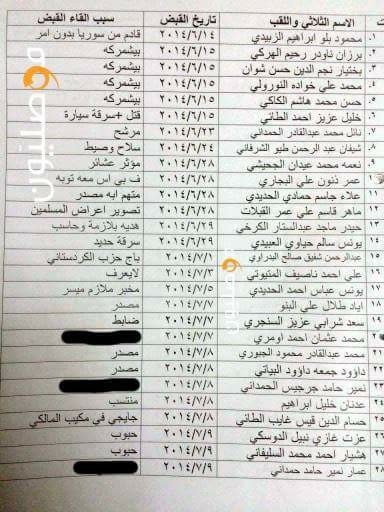 ت الاسم الثلاثي واللقب تاريخ القبض سبب القاء القبض
١. محمود بلو ابراهيم الزبيدي ٢٠١٤/٦/١٤ قادم من سوريا بدون امر
٢. برزان ناودر رحيم الهركي ٢٠١٤/٦/١٥ بيشمركه
٣. بختيار نجم الدين حسن شوان ٢٠١٤/٦/١٥ بيشمركه
٤. محمد علي خواده النورولي ٢٠١٤/٦/١٥ بيشمركه
٥. حسن محمد هاشم الكاكي ٢٠١٤/٦/١٥ بيشمركه
٦. خليل عزيز احمد الطائي ٢٠١٤/٦/١٥ قتل +سرقة سيارة
٧. نائل محمد عبدالقادر الحمداني ٢٠١٤/٦/٢٣ مرشح
٨. شيفان عبد الرحمن طيو الشرفاني ٢٠١٤/٦/٢٤ سلاح وصيط
٩. نعمه محمد عيدان الجحيشي ٢٠١٤/٦/٢٨ مؤثر عشائر
١٠. عمر ذنون علي البجاري ٢٠١٤/٦/٢٨ في بي اس معه توبه
١١. علاء جاسم حمادي الحديدي ٢٠١٤/٦/٢٨ متهم ابه مصدر
١٢. ماهر قاسم علي عمر القبلات ٢٠١٤/٦/٢٨ تصوير اعراض المسلمين
١٣. حيدر ماجد عبدالستار الكرخي ٢٠١٤/٦/٢٩ هديه بلازمة وحاسب
١٤. يونس سالم حياوي العبيدي ٢٠١٤/٦/٢٩ سرقة حديد
١٥. عبدالرحمن شفيق صالح البدراوي ٢٠١٤/٧/١ باج حزب الكردستاني
١٦. علي احمد ناصيف المتيوتي ٢٠١٤/٧/٣ لايعرف
١٧. يونس عباس احمد الحديدي ٢٠١٤/٧/٥ مخبر ملازم ميسر
١٨. اياد طلال علي البنو ٢٠١٤/٧/٧ مصدر
١٩. سعد شرابي عزيز السنجري ٢٠١٤/٧/٧ ضابط
٢٠. محمد عثمان احمد اومري ٢٠١٤/٧/٧
٢١. محمد عبدالقادر محمود الجبوري ٢٠١٤/٧/٧ مصدر
٢٢. داؤود جمعه داؤود البياتي ٢٠١٤/٧/٨ مصدر
٢٣. نمير حامد جرجيس الحمداني ٢٠١٤/٧/٨
٢٤. عدنان خليل ابراهيم ٢٠١٤/٧/٨ منتسب
٢٥. حسام الدين قيس غايب الطائي ٢٠١٤/٧/٨ جايجي في مكيب المالكي
٢٦. عزت غازي نبيل الدوسكي ٢٠١٤/٧/٩ حبوب
٢٧. هشيار احمد محمد السليفاني ٢٠١٤/٧/٩ حبوب
٢٨. عمار نمير حامد حمداني ٢٠١٤/٧/٩
موصليون
موصليون